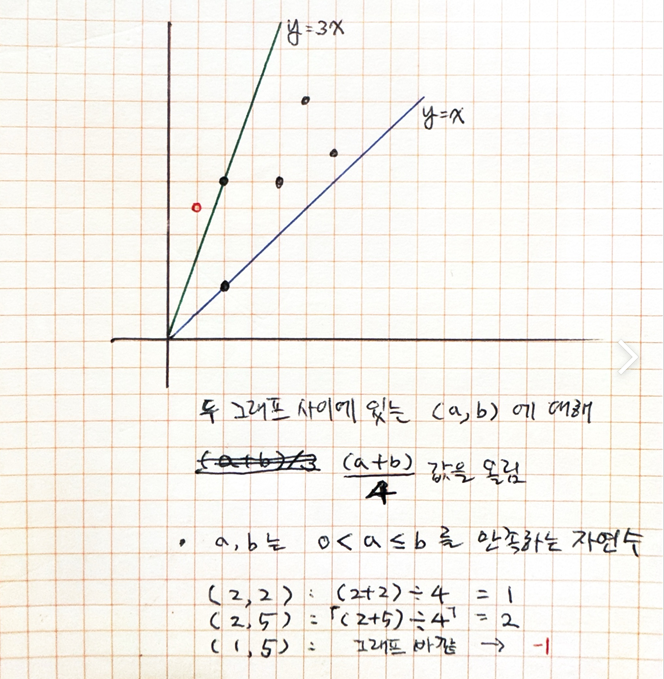 y=3x
y=x
두 그래프 사이에 있는 (a,b) 에 대해
(a+b)/3 (a+b)/4 값을 올림
• a,b는 0<a≤b를 만족하는 자연수
(2,2) : (2+2)÷4 = 1
(2,5) = ⌈(2+5)÷4⌉ = 2
(1,5) : 그래프 바깥 → -1